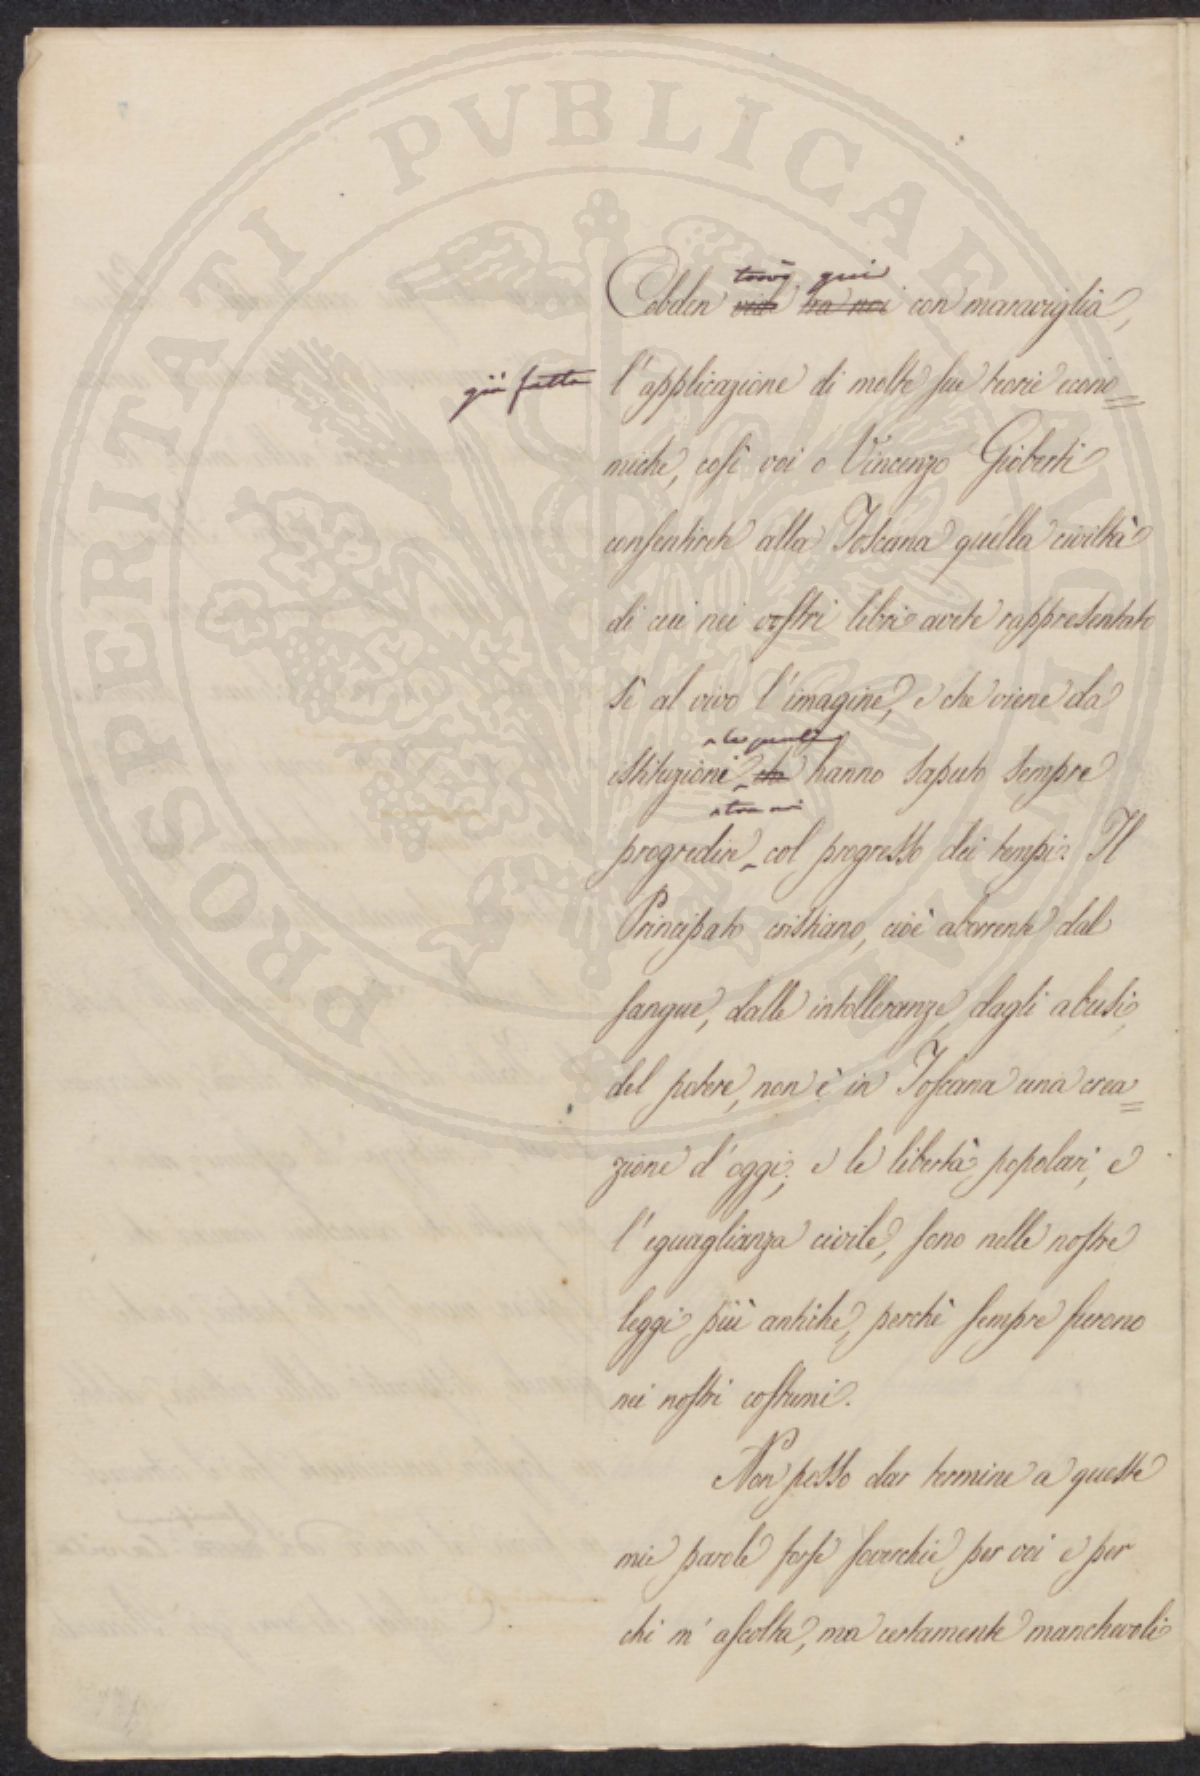 trovò qui
Cobden vide tra noi con maraviglia,
già fatta l'applicazione di molte sue teorie econo=
miche, così voi o Vincenzo Gioberti
consentirete alla Toscana quella civiltà
di cui nei vostri libri avete rappresentato
sì al vivo l'imagine, e che viene da
le quali
istituzioni che hanno saputo sempre
tra noi
progredire col progresso dei tempi. Il
Principato cristiano, cioè aborrente dal
sangue, dalle intolleranze, dagli abusi
del potere, non è in Toscana una crea=
zione d'oggi; e le libertà popolari, e
l'eguaglianza civile, sono nelle nostre
leggi più antiche, perchè sempre furono
nei nostri costumi.
Non posso dar termine a queste
mie parole forse soverchie per voi e per
chi m'ascolta, ma certamente manchevoli
PROSPERITATI PVBLICAE AVGENDAE